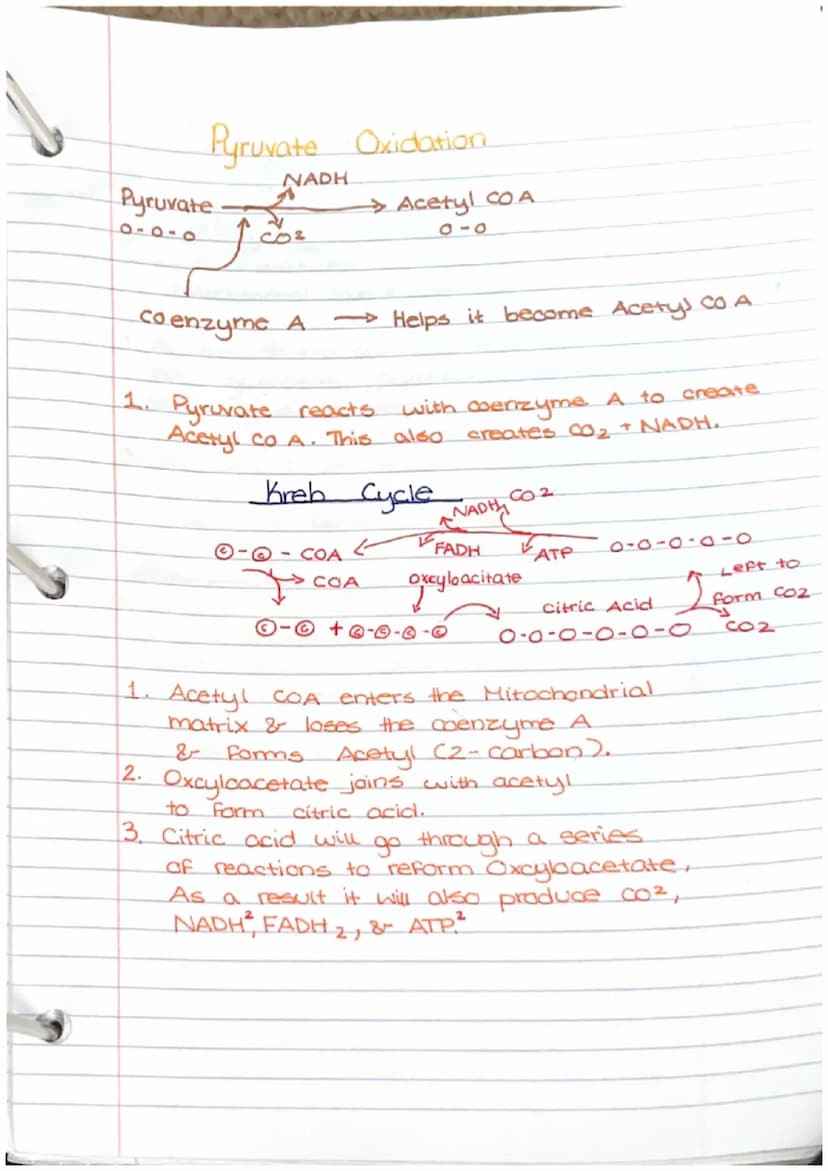 Pyruvate Oxidation
NADH
Pyruvate → Acetyl CO A
O-O-O CO2 O-O
coenzyme A → Helps it become Acetyl CO A
1. Pyruvate reacts with coenzyme A to create
Acetyl CO A. This also creates CO2 + NADH.
Kreb Cycle
NADH, CO2
C-C-COA FADH ATP O-O-O-O-O
COA oxcyloacitate Left to
Citric Acid form CO2
C-C + C-C-C-C O-O-O-O-O-O CO2
1. Acetyl COA enters the Mitochondrial
matrix & loses the coenzyme A
& forms Acetyl (2-carbon).
2. Oxcyloacetate joins with acetyl
to form citric acid.
3. Citric acid will go through a series
of reactions to reform Oxcyloacetate.
As a result it will also produce CO2,
NADH², FADH2, & ATP.²